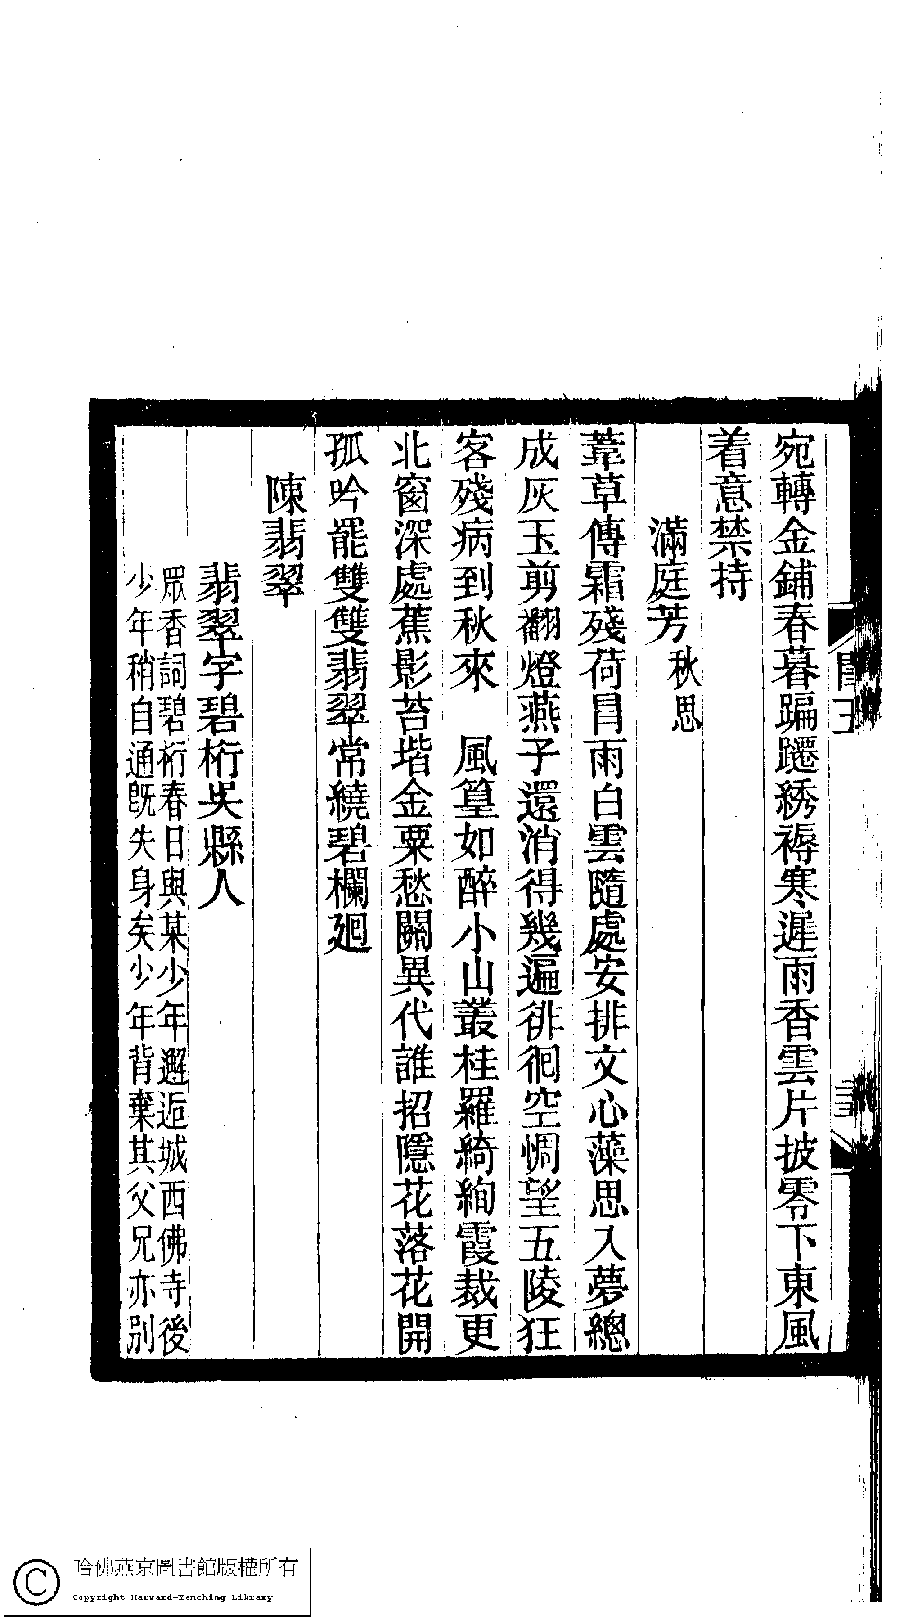 宛轉金鋪春暮蹁躚綉褥寒遲雨香雲片披零下東風
着意禁持
滿庭芳 秋思
葦草傳霜殘荷冒雨白雲隨處安排文心藻思入夢總
成灰玉剪翻燈燕子還消得幾遍徘徊空惆望五陵狂
客殘病到秋來 風篁如醉小山叢桂羅綺絢霞裁更
北窗深處蕉影苔堦金粟愁關異代誰招隱花落花開
孤吟罷雙雙翡翠常繞碧欄廻
陳翡翠
翡翠字碧桁吳縣人
眾香詞碧桁春日與某少年邂逅城西佛寺後
少年稍自通旣失身矣少年背棄其父兄亦別
哈佛燕京圖書館版權所有
Copyright Harvard-Yenching Library